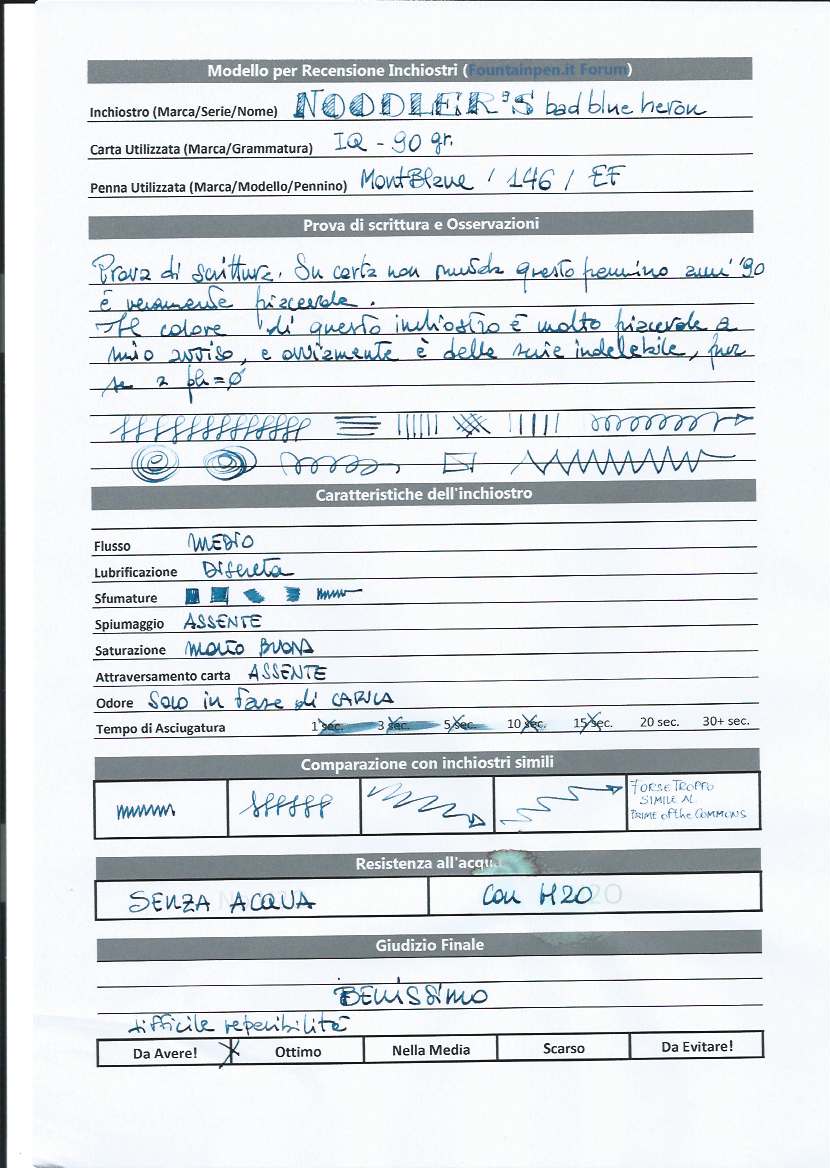 Modello per Recensione Inchiostri (Fountainpen.it Forum)
Inchiostro (Marca/Serie/Nome) NOODLER'S bad blue heron
Carta Utilizzata (Marca/Grammatura) IQ - 90 gr.
Penna Utilizzata (Marca/Modello/Pennino) MontBlanc / 146 / EF
Prova di scrittura e Osservazioni
Prova di scrittura. Su carta non questo pennino anni '90
è veramente piacevole.
Il colore di questo inchiostro è molto piacevole a
mio avviso, e ovviamente è della serie indelebile, pur
se a ph=0
Caratteristiche dell'inchiostro
Flusso MEDIO
Lubrificazione Discreta
Sfumature
Spiumaggio ASSENTE
Saturazione MOLTO BUONA
Attraversamento carta ASSENTE
Odore Solo in fase di CARICA
Tempo di Asciugatura 1 sec. 3 sec. 5 sec. 10 sec. 15 sec. 20 sec. 30+ sec.
Comparazione con inchiostri simili
FORSE TROPPO
SIMILE AL
PRIME of the COMMONS
Resistenza all'acqua
SENZA ACQUA con H2O
Giudizio Finale
BENISSIMO
difficile reperibilità
Da Avere! X Ottimo Nella Media Scarso Da Evitare!